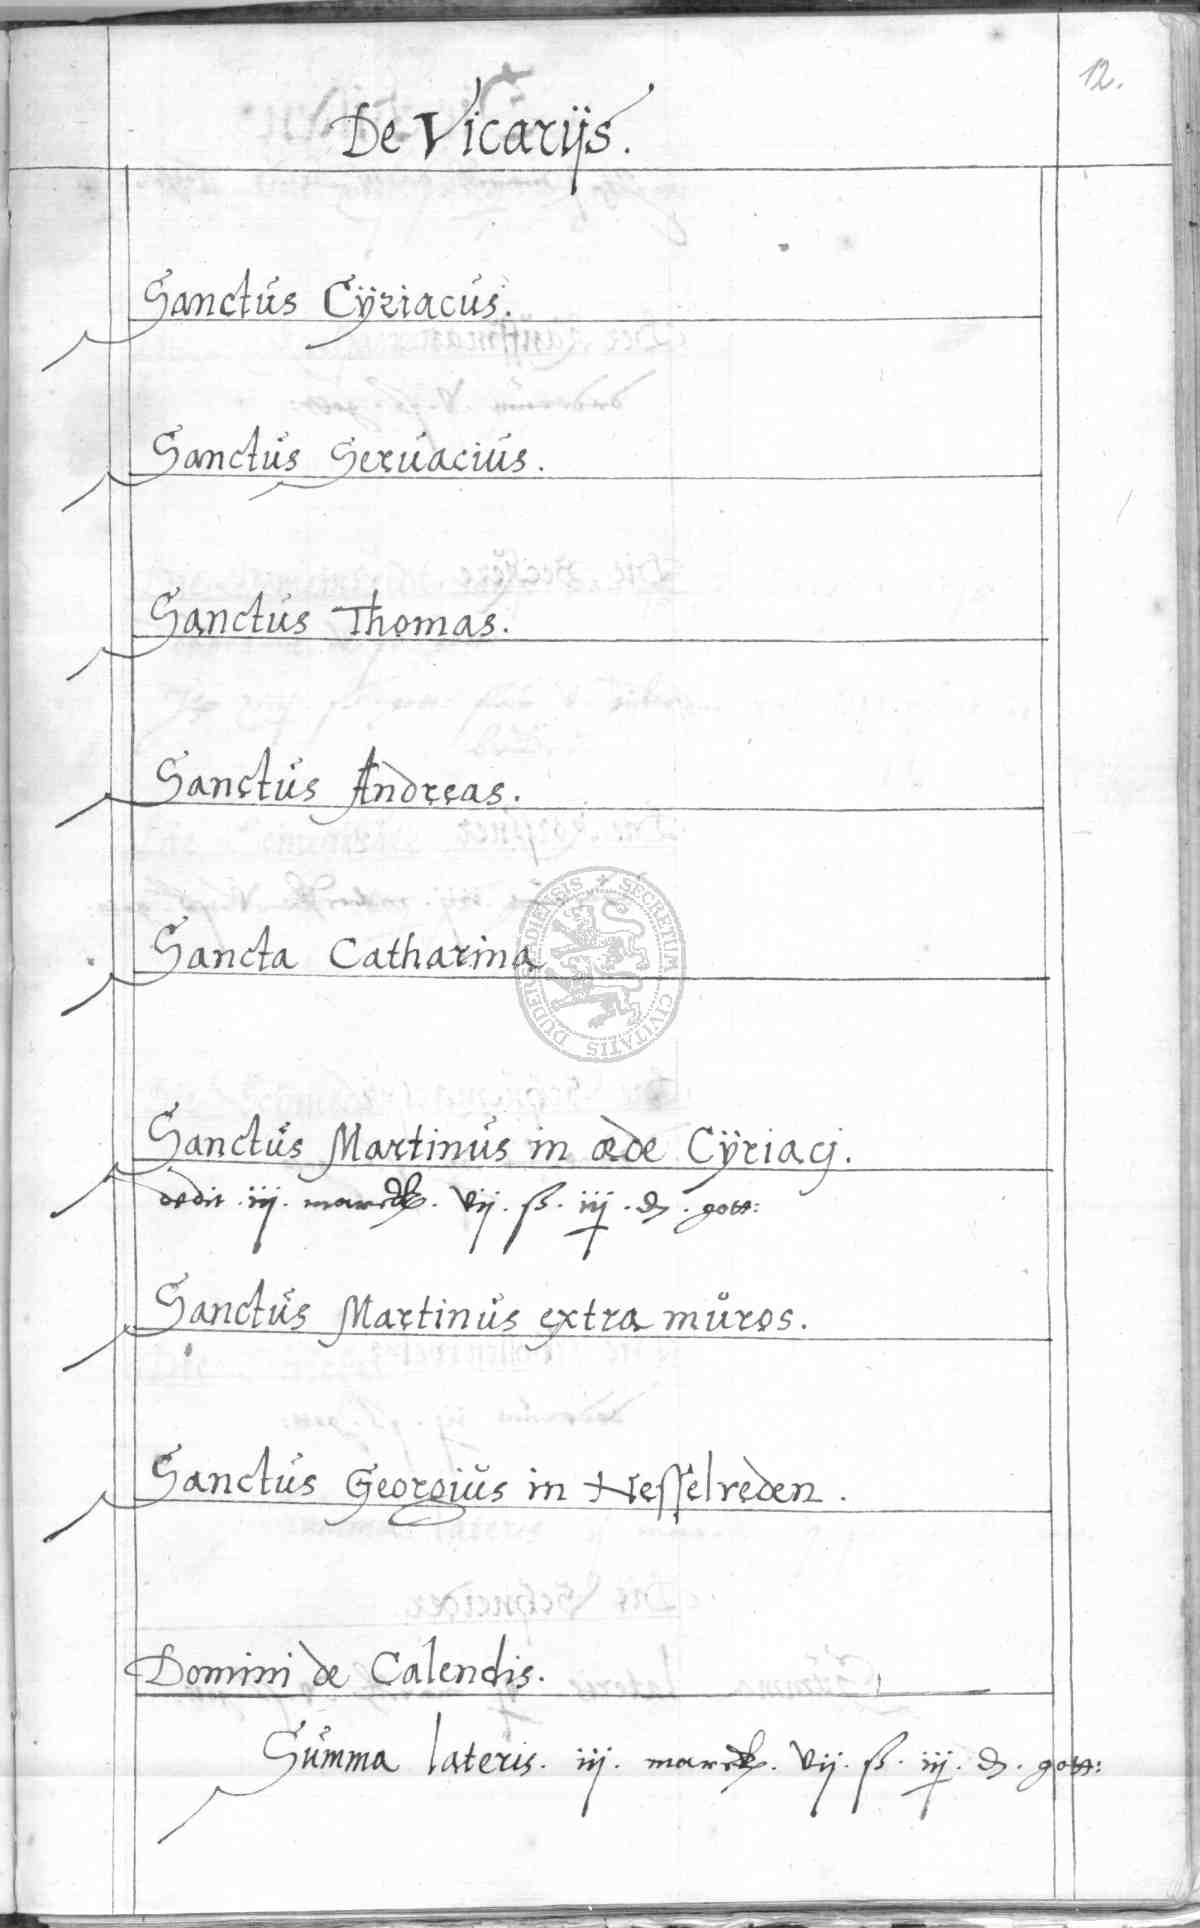 12.
De Vicarijs.
Sanctus Cÿriacus.
Sanctus Seruacius.
Sanctus Thomas.
Sanctus Andreas.
Sancta Catharina
SECRETUM CIVITATIS DUDERSTADIENSIS
Sanctus Martinus in æde Cÿriacj.
dedit .iij. marck. vij. ß. iij. ₰. gott:
Sanctus Martinus extra muros.
Sanctus Georgius in Nesselreden.
Domini de Calendis.
Summa lateris. iij. marck. vij. ß. iij. ₰. gott: